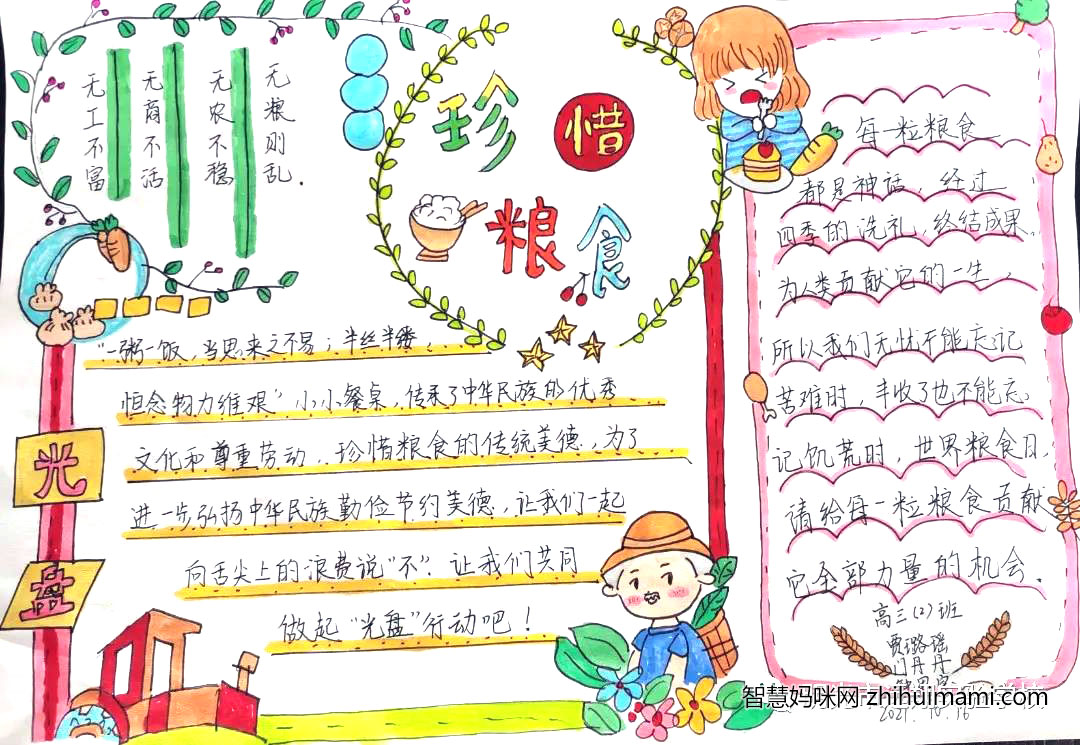 无粮则乱.
无农不稳
无商不活
无工不富
珍惜
粮食
"一粥一饭,当思来之不易;半丝半缕,
恒念物力维艰"小小餐桌,传承了中华民族的优秀
文化和尊重劳动,珍惜粮食的传统美德,为了
进一步弘扬中华民族勤俭节约美德,让我们一起
向舌尖上的浪费说"不",让我们共同
做起"光盘"行动吧!
光
盘
每一粒粮食
都是神话,经过
四季的洗礼,终结成果,
为人类贡献它的一生,
所以我们无忧千能忘记
苦难时,丰收了也不能忘
记饥荒时,世界粮食日,
请给每一粒粮食贡献
它全部力量的机会.
高三(2)班
贾璐瑶
门丹丹
2021.10.16
智慧妈咪网 zhihuimami.com